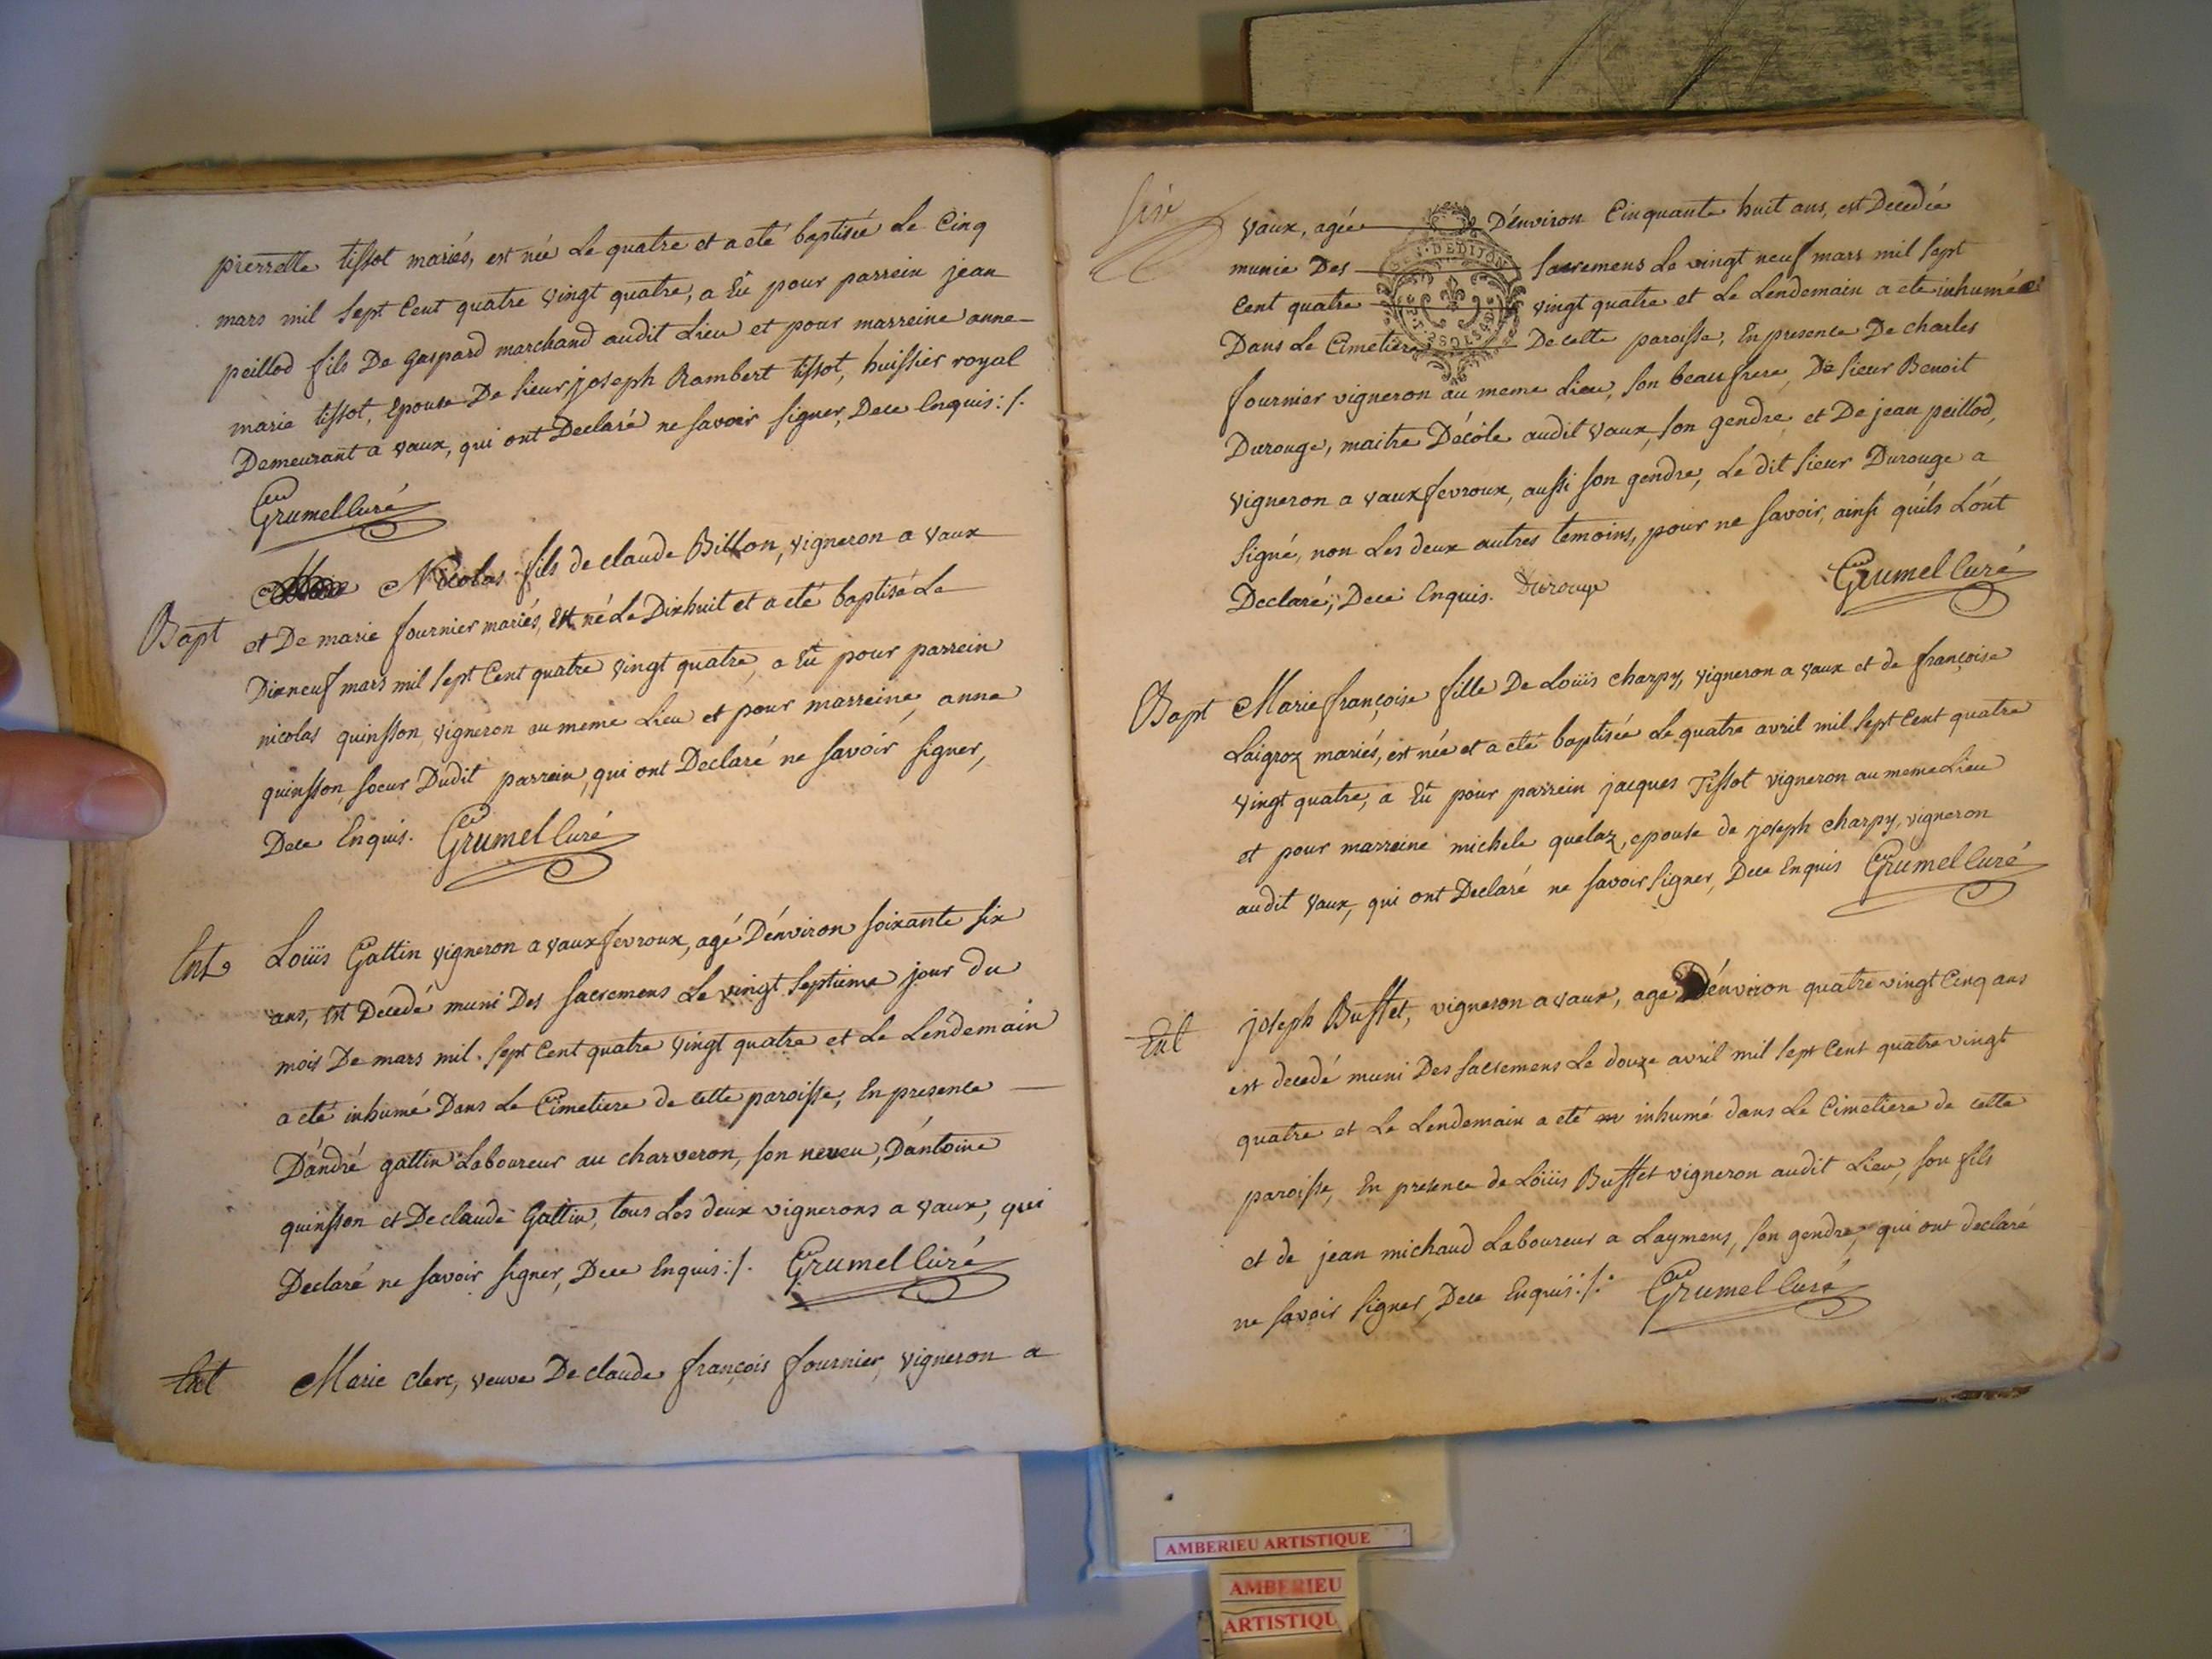 pierrette tissot mariés, est née Le quatre et a eté baptisée Le Cinq
mars mil Sept Cent quatre vingt quatre, a Eü pour parrein jean
peillod fils De gaspard marchand audit Lieu et pour marreine anne
marie tissot, Epouse De Sieur joseph Rambert tissot, huissier royal
Demeurant a vaux, qui ont Declaré ne savoir signer, Dece Enquis :/.
Grumel Curé
Bapt
Nicolas fils de claude Billon, vigneron a vaux
et De marie fournier mariés, Est né Le Dixhuit et a eté baptisé Le
Dixneuf mars mil Sept Cent quatre vingt quatre, a Eü pour parrein
nicolas quinsson, vigneron au meme Lieu et pour marreine, anne
quinsson, soeur Dudit parrein, qui ont Declaré ne savoir signer,
Dece Enquis. Grumel Curé
Ent
Loüis Gattin vigneron a vaux fevroux, agé D'environ soixante six
ans, est Decedé muni Des sacremens Le vingt septieme jour du
mois De mars mil. Sept Cent quatre vingt quatre et Le Lendemain
a eté inhumé Dans Le Cimetiere de cette paroisse, En presence
D'andré gattin Laboureur au charveron, son neveu, D'antoine
quinsson et De claude Gattin, tous Les deux vignerons a vaux, qui
Declaré ne savoir signer, Dece Enquis :/. Grumel Curé
Ent
Marie clerc, veuve De claude françois fournier, vigneron a
Six
vaux, agée D'environ Cinquante huit ans, est Decedée
munie Des sacremens Le vingt neuf mars mil sept
Cent quatre vingt quatre et Le Lendemain a eté inhumée
Dans Le Cimetiere De cette paroisse, En presence De charles
fournier vigneron au meme Lieu, son beau frere, De sieur Benoit
Durouge, maitre D'école audit vaux, son gendre, et De jean peillod,
vigneron a vaux fevroux, aussi son gendre, Le dit sieur Durouge a
signé, non Les deux autres temoins, pour ne savoir, ainsi qu'ils L'ont
Declaré, Dece Enquis. Durouge Grumel Curé
Bapt
Marie françoise fille De Loüis charpy, vigneron a vaux et de françoise
Laigroz mariés, est née et a eté baptisée Le quatre avril mil Sept Cent quatre
vingt quatre, a Eü pour parrein jacques Tissot vigneron au meme Lieu
et pour marreine michele quelaz, epouse de joseph charpy, vigneron
audit vaux, qui ont Declaré ne savoir signer, Dece Enquis Grumel Curé
Ent
joseph Buffet, vigneron a vaux, agé D'environ quatre vingt Cinq ans
est decedé muni Des sacremens Le douze avril mil sept Cent quatre vingt
quatre et Le Lendemain a eté inhumé dans Le Cimetiere de cette
paroisse, En presence de Loüis Buffet vigneron audit Lieu, son fils
et de jean michaud Laboureur a Laymens, son gendre, qui ont declaré
ne savoir signer, Dece Enquis :/. Grumel Curé
AMBERIEU ARTISTIQUE
AMBERIEU
ARTISTIQU